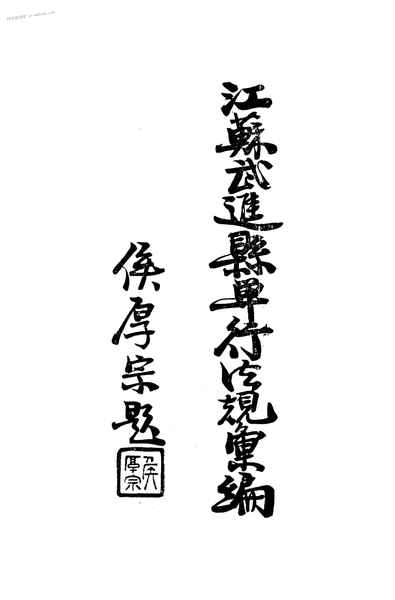 江蘇武進縣單行法規彙編
侯厚宗題
侯厚宗